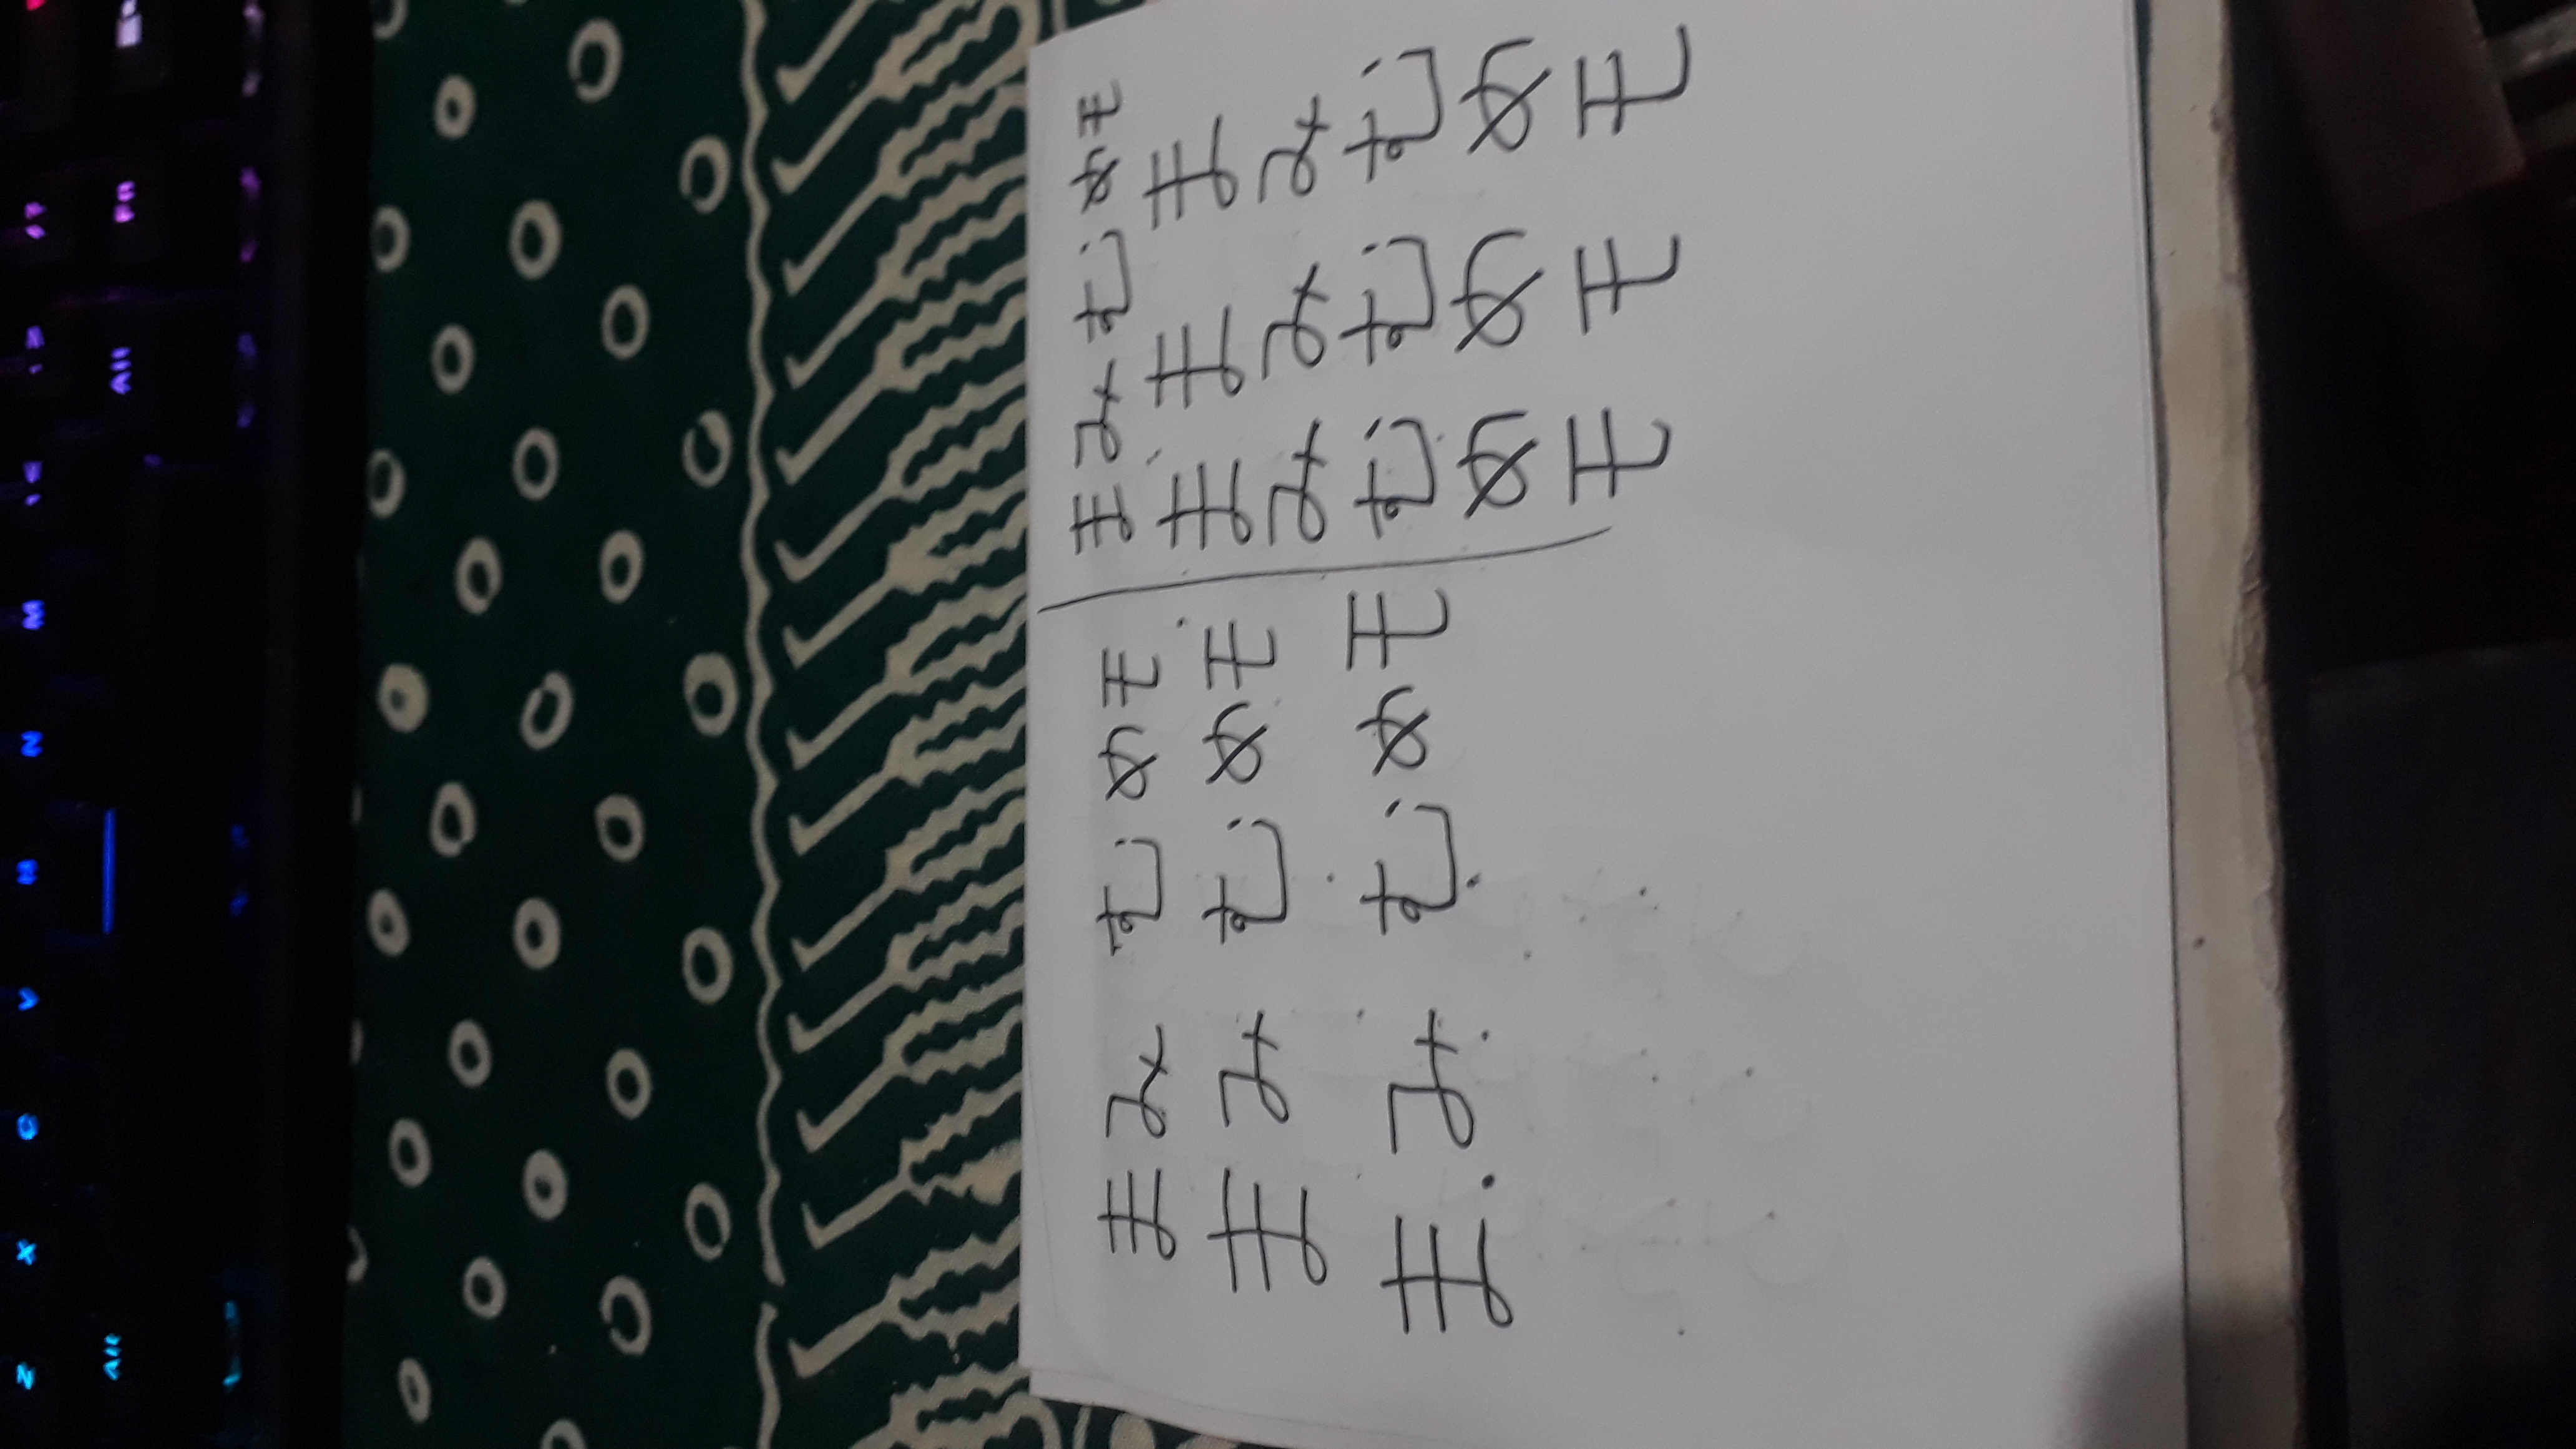 Z X C V B N M
Alt Alt Fn
まみむめモ
まみむめモ
ま.みむめモ
まみむめモ
ままま
みみみ
むむむ
めめめ
モモモ